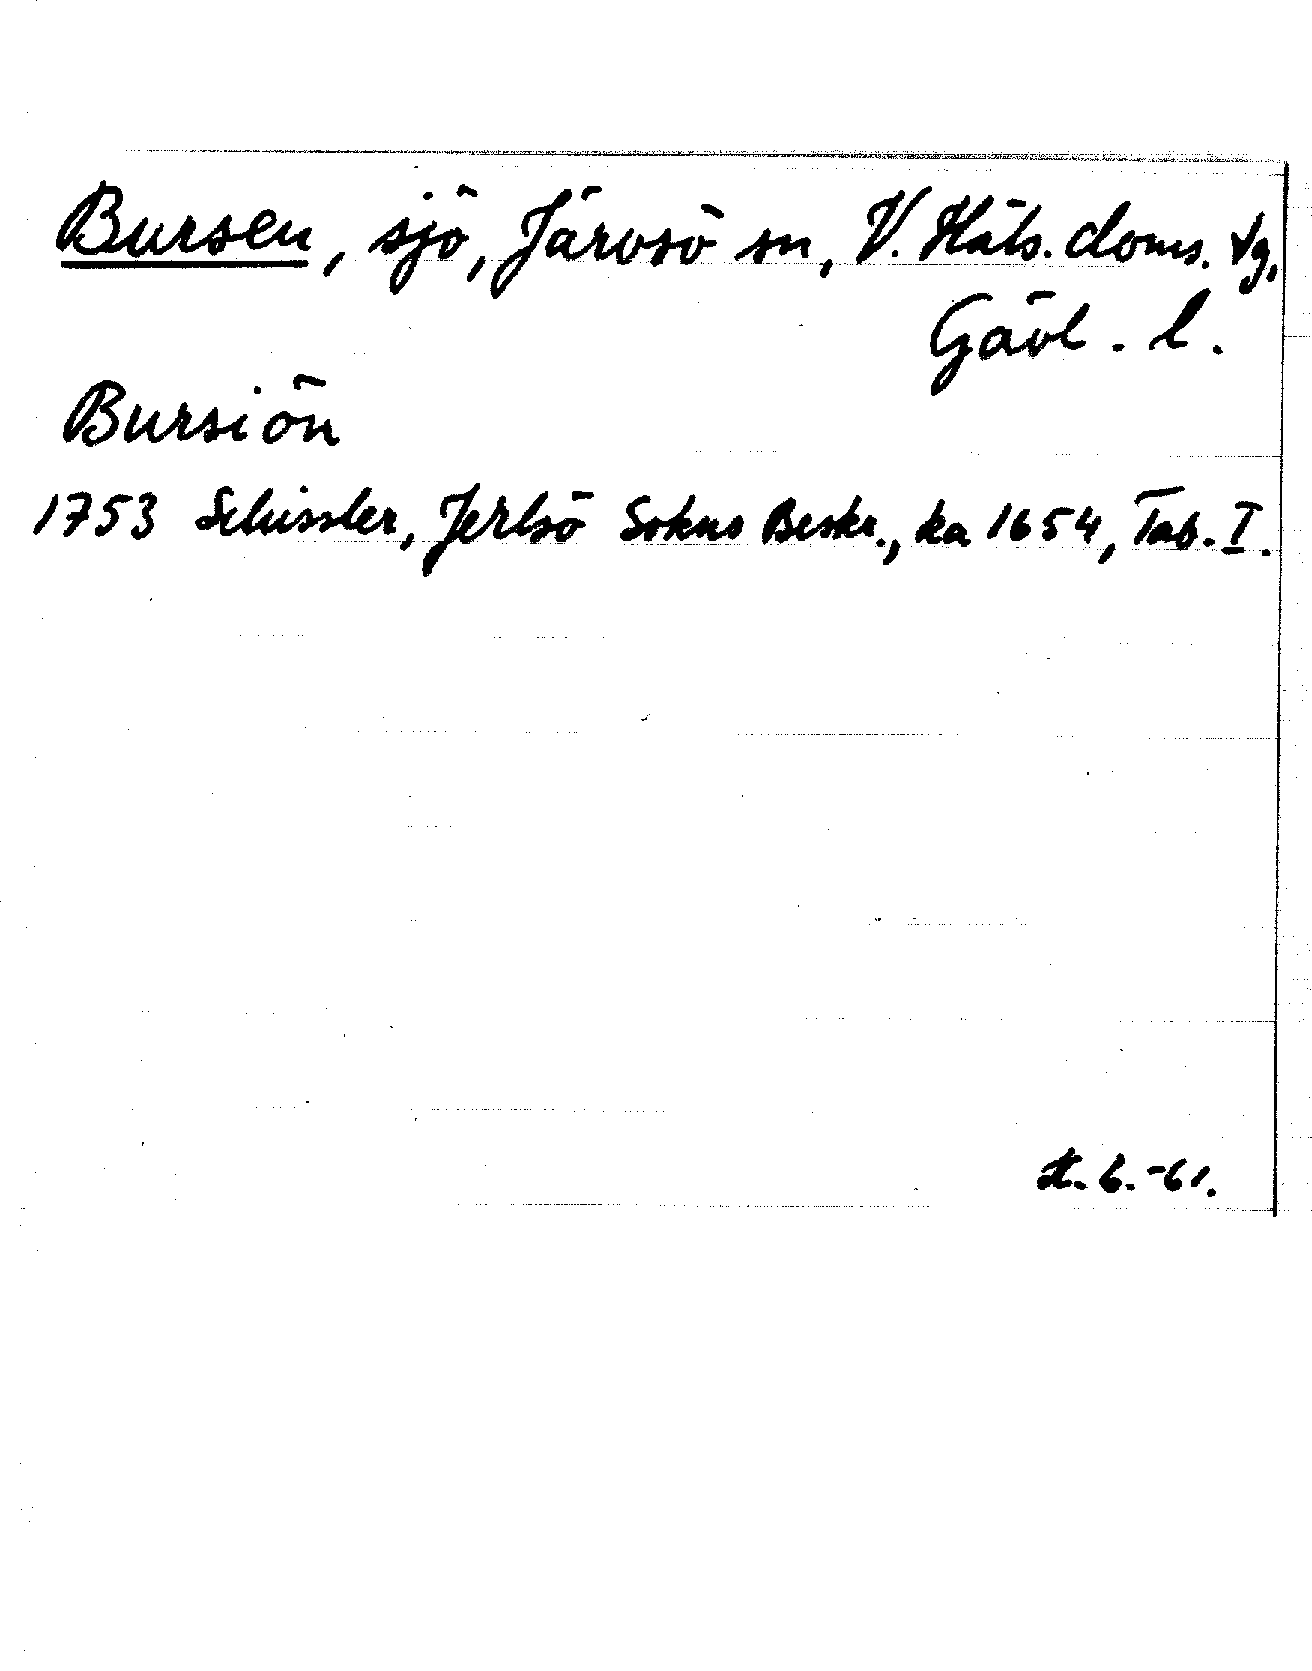 Bursen, sjö, Järvsö sn, V. Häls. doms. tg,
Gävl. l.
Bursiön
1753 Schissler, Jerlsö Sokns Beskr., ka 1654, Tab. I.
6.-61.